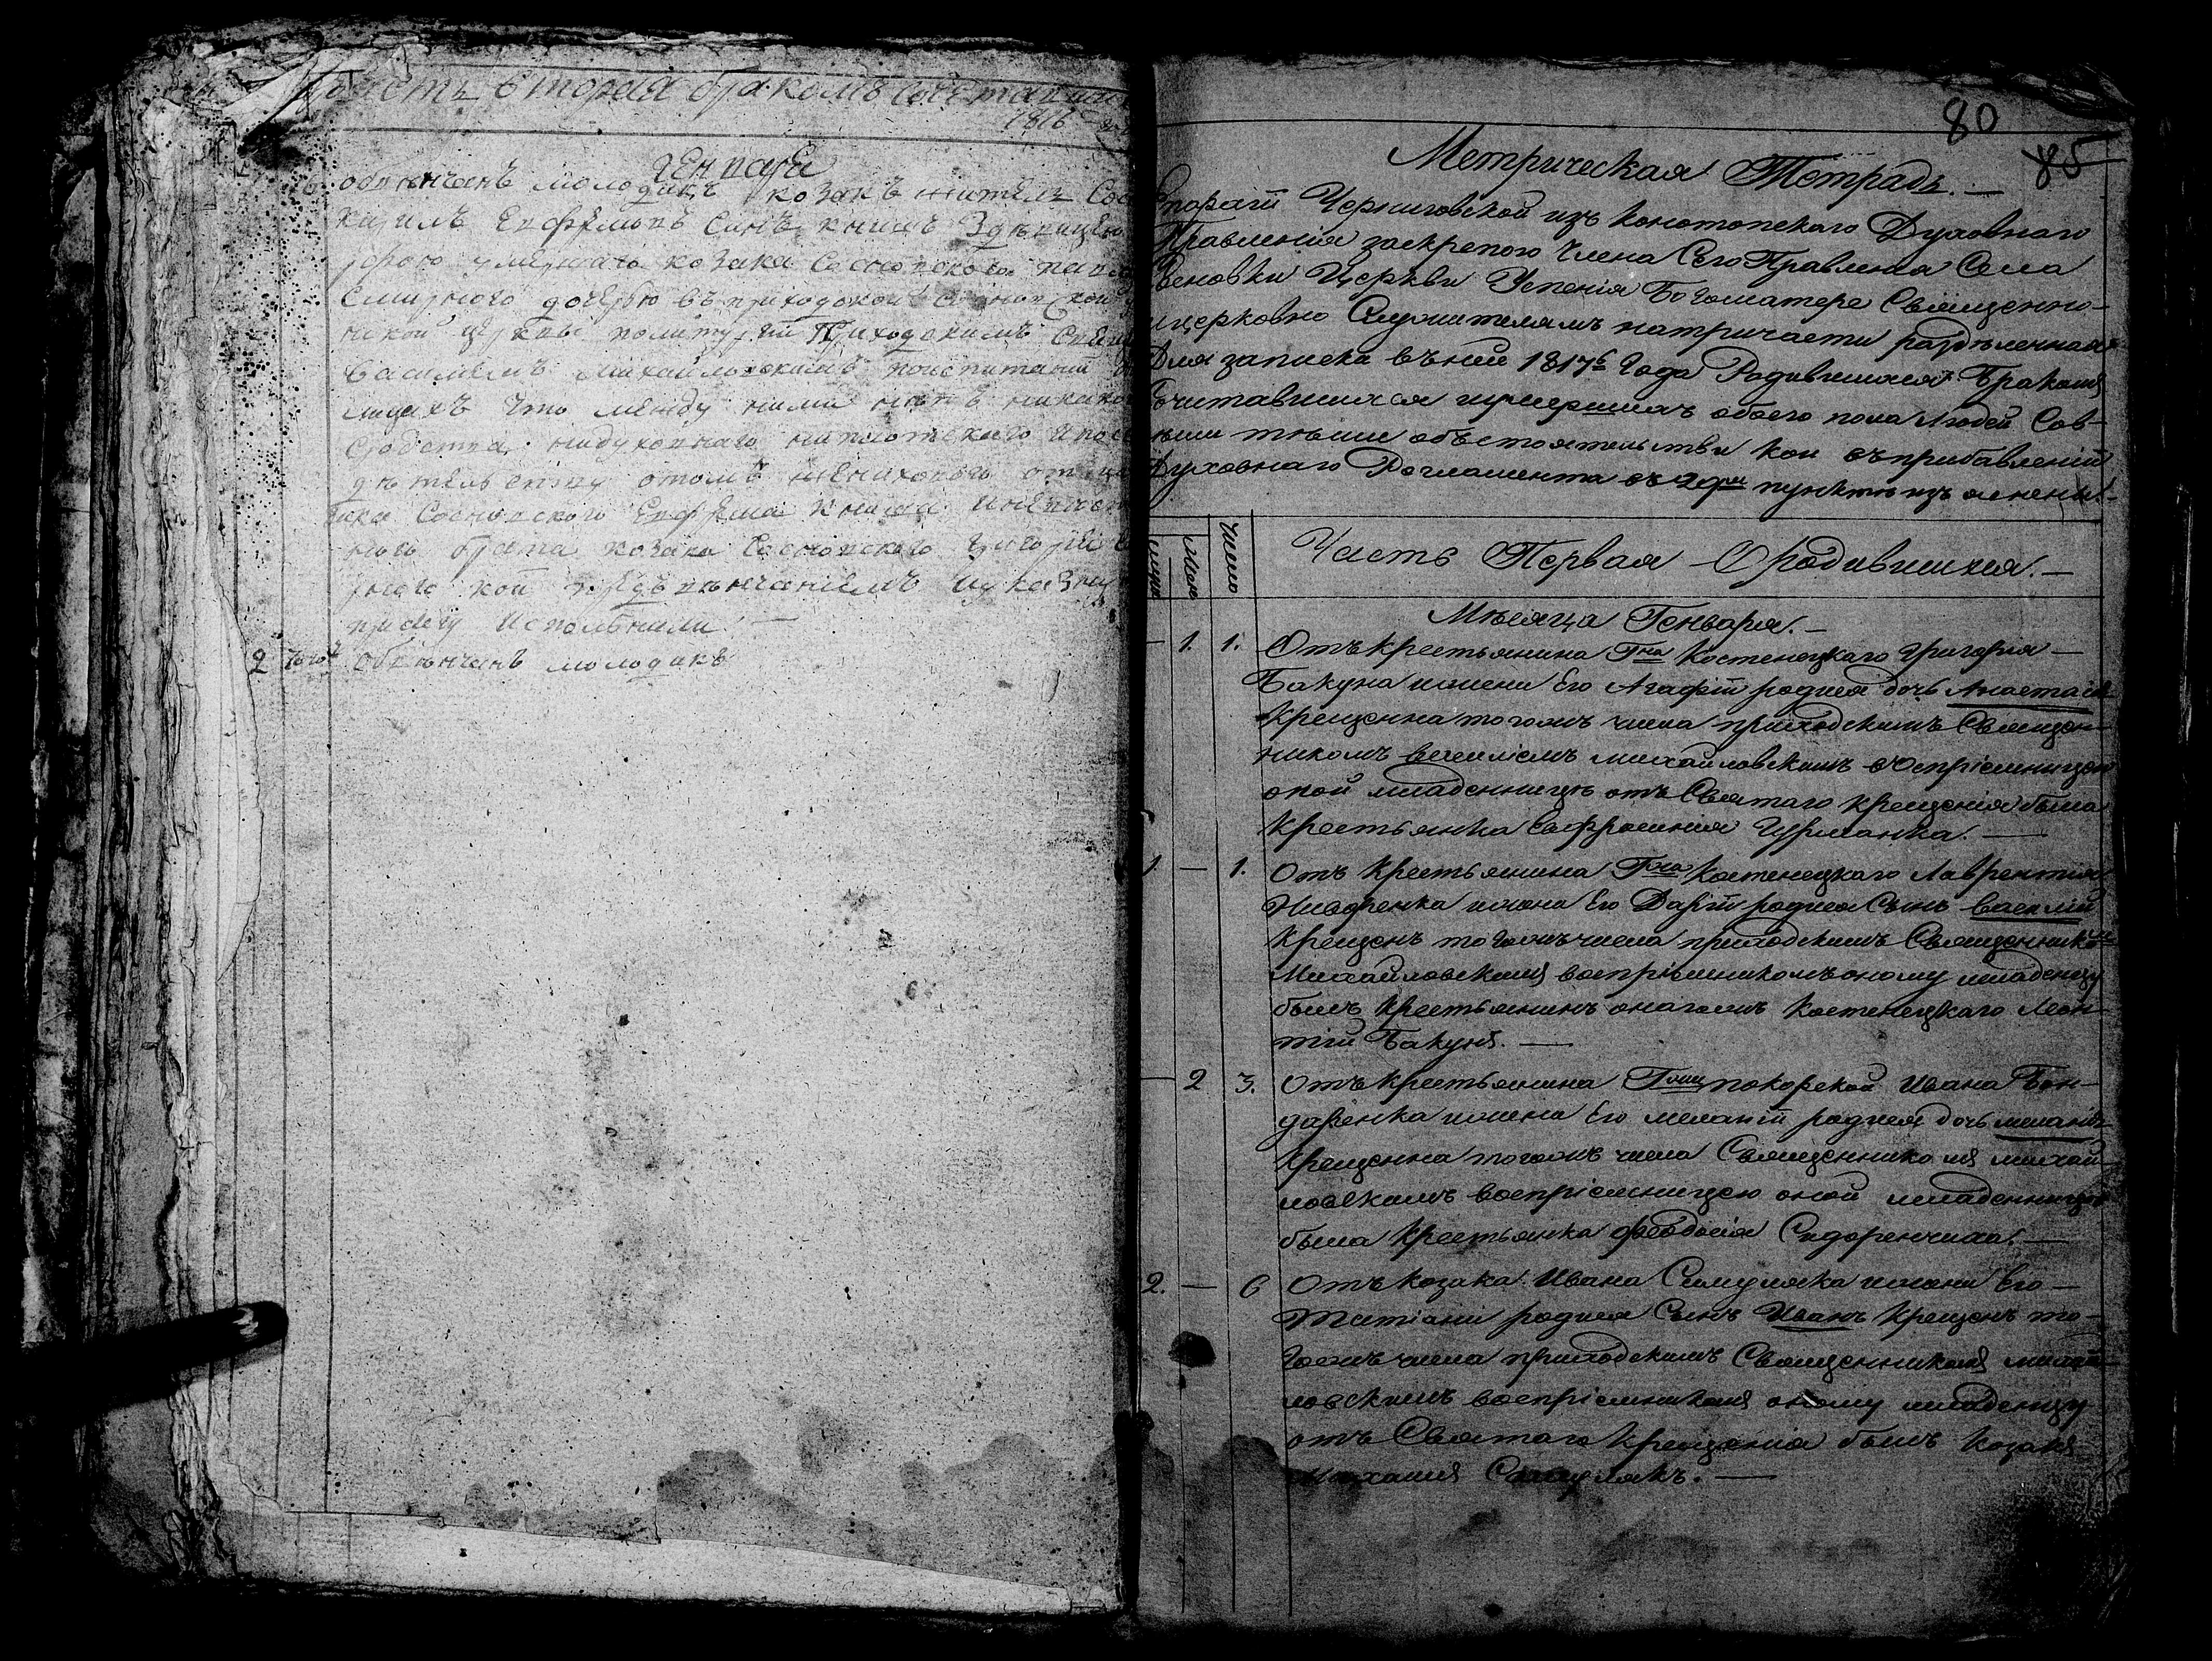 Часть вторая бракомъ сочетавши
1816
генваря
обвѣнчанъ молодикъ козакъ житель Сос
Кирилъ Евфремовъ Синъ книшъ Здѣвицею
умершаго козака Сосновского
Смирного дочерью въ приходской Сосновской
ской церкве политургіи Приходскимъ Свящ
Василіемъ Михайловскимъ
лицахъ что между ними нѣтъ никако
Сродства нидуховнаго ниплотскаго
дѣтельству отомъ жениховъ отца
Сосновского Евфрема книша
брата козака Сосновского Григорія
кои предъ вѣнчаніемъ
присягу Исполнили. —
2 того обвѣнчанъ молодикъ
80
85
Метрическая Тетрадь. —
Епархіи Черниговской изъ Конотопского Духовнаго
Правленія заскрепою Члена Сего Правленія Села
Сосновки Церкви Успенія Богоматере Священно-
ицерковно Служителямъ натричасти раздѣленная
Для записки въней 1817 Года Родившихся Бракомъ
Сочитавшихся иумершихъ обоего пола Людей Сов-
сѣми тѣми обьстоятельстви кои въприбавленіи
Духовнаго Регламента въ 29мъ пунктѣ изъяснени.
Число
Часть Первая Ородившихся. —
Мѣсяца Генваря. —
— 1. 1. Отъ крестьянина Гна Костенецкаго Григорія —
Бакуна ижени Его Агафіи родися дочь Анастасія
Крещенна тогожъ числа приходскимъ Священ-
никомъ Василіемъ Михайловскимъ воспріемницею
оной младенницѣ отъ Святаго Крещенія была
Крестьянка Евфросинія Гурманка. —
1 — 1. Отъ Крестьянина Гна Костенецкаго Лаврентія
ижени Его Даріи родися Сынъ Василій
Крещенъ тогожъ числа приходскимъ Священникомъ
Михайловскимъ воспріемникомъ оному младенцу
былъ Крестьянинъ оногожъ Костенецкаго Леон-
тій Бакунъ. —
— 2 3. Отъ Крестьянина Гжи покорской Ивана Бон-
даренка ижени Его Меланіи родися дочь Меланія
Крещенна тогожъ числа Священникомъ Михай-
ловскимъ воспріемницею оной младенницѣ
была Крестьянка Феодосія Сидоренчиха. —
2. — 6 Отъ козака Ивана Самуляка ижени Его —
Татіани родися Сынъ Иванъ Крещенъ то-
гожъ числа приходскимъ Священникомъ Михай-
ловскимъ воспріемникомъ оному младенцу
отъ Святаго Крещенія былъ козакъ
Михаилъ Самулякъ. —